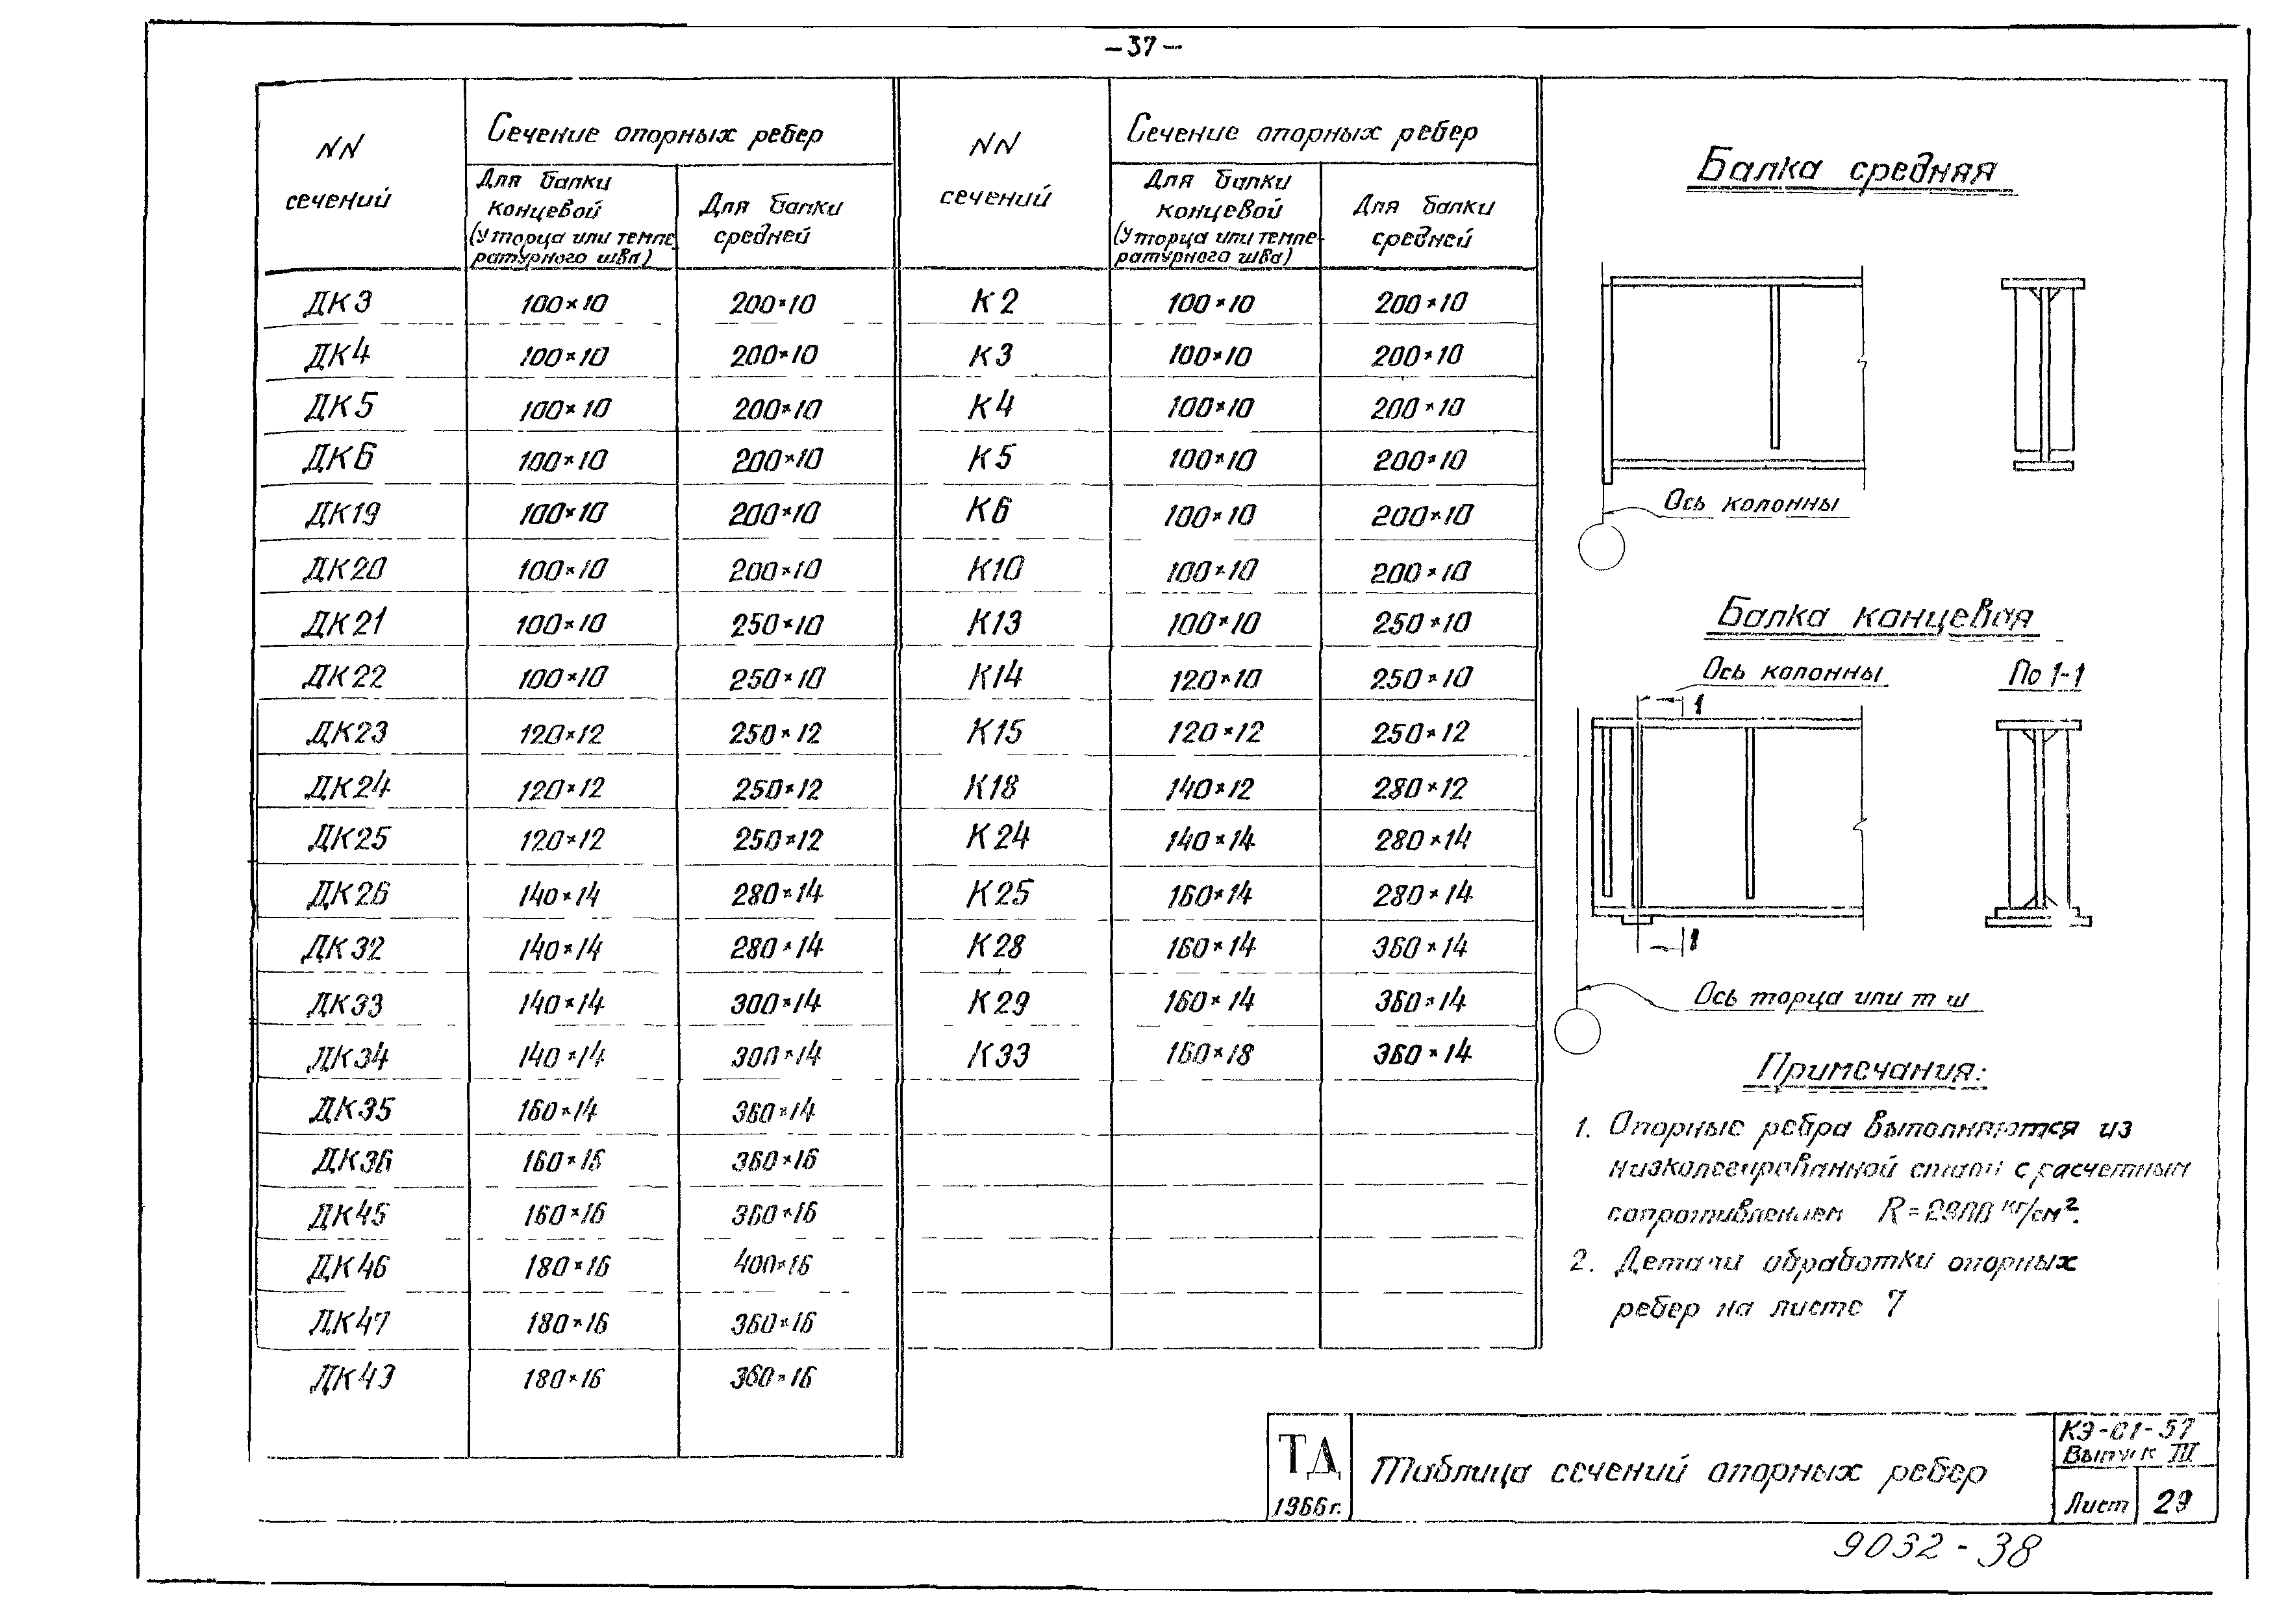 -37-
NN сечений
Сечение опорных ребер
Для балки концевой (У торца или температурного шва)
Для балки средней
NN сечений
Сечение опорных ребер
Для балки концевой (У торца или температурного шва)
Для балки средней
ДК3 100×10 200×10 К2 100×10 200×10
ДК4 100×10 200×10 К3 100×10 200×10
ДК5 100×10 200×10 К4 100×10 200×10
ДК6 100×10 200×10 К5 100×10 200×10
ДК19 100×10 200×10 К6 100×10 200×10
ДК20 100×10 200×10 К10 100×10 200×10
ДК21 100×10 250×10 К13 100×10 250×10
ДК22 100×10 250×10 К14 120×10 250×10
ДК23 120×12 250×12 К15 120×12 250×12
ДК24 120×12 250×12 К18 140×12 280×12
ДК25 120×12 250×12 К24 140×14 280×14
ДК26 140×14 280×14 К25 160×14 280×14
ДК32 140×14 280×14 К28 160×14 360×14
ДК33 140×14 300×14 К29 160×14 360×14
ДК34 140×14 300×14 К33 160×18 360×14
ДК35 160×14 360×14
ДК36 160×16 360×16
ДК45 160×16 360×16
ДК46 180×16 400×16
ДК47 180×16 360×16
180×16 360×16
Балка средняя
Ось колонны
Балка концевая
Ось колонны
По 1-1
1
1
Ось торца или т ш
Примечания:
1. Опорные ребра выполняются из
низколегированной стали с расчетным
сопротивлением R=2900 кг/см².
2. Детали обработки опорных
ребер на листе 7
ТД
1966г.
Таблица сечений опорных ребер
КЭ-01-57
Выпуск III
Лист 29
9032-38